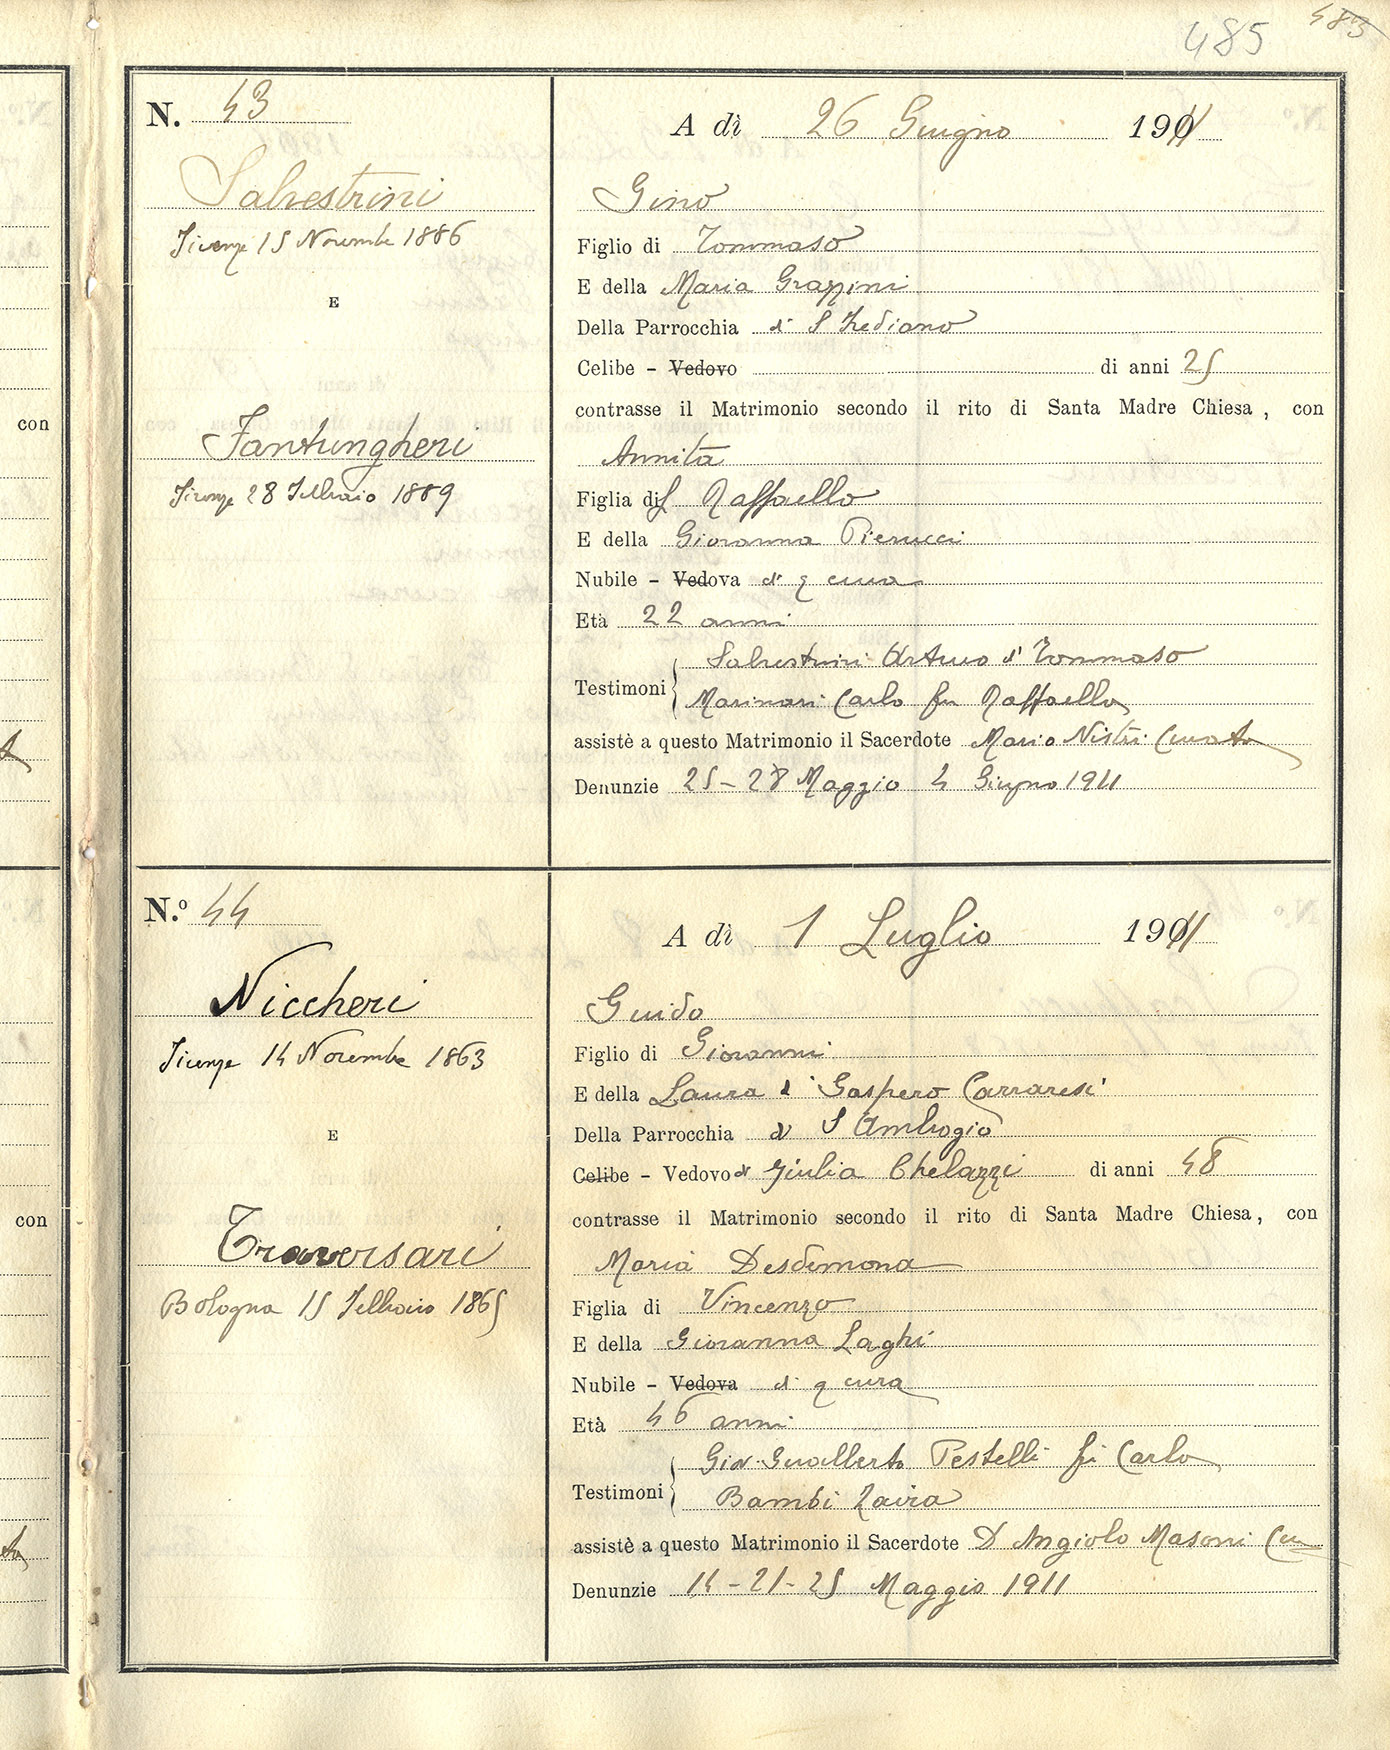 485 483
N. 43
Salvestrini
Firenze 15 Novembre 1886
E
Fantungheri
Firenze 28 Febbraio 1889
A dì 26 Giugno 1911
Gino
Figlio di Tommaso
E della Maria Grazzini
Della Parrocchia di S Frediano
Celibe - Vedovo di anni 25
contrasse il Matrimonio secondo il rito di Santa Madre Chiesa, con
Annita
Figlia di Raffaello
E della Giovanna Pierucci
Nubile - Vedova di q cura
Età 22 anni
Salvestrini Arturo di Tommaso
Testimoni
Marinari Carlo fu Raffaello
assistè a questo Matrimonio il Sacerdote Mario Nistri Curato
Denunzie 25 - 28 Maggio 4 Giugno 1911
N.o 44
Niccheri
Firenze 14 Novembre 1863
E
Traversari
Bologna 15 Febbraio 1865
A dì 1 Luglio 1911
Guido
Figlio di Giovanni
E della Laura di Gaspero Carraresi
Della Parrocchia di S Ambrogio
Celibe - Vedovo di Giulia Chelazzi di anni 48
contrasse il Matrimonio secondo il rito di Santa Madre Chiesa, con
Maria Desdemona
Figlia di Vincenzo
E della Giovanna Laghi
Nubile - Vedova di q cura
Età 46 anni
Gio. Gualberto Pestelli fu Carlo
Testimoni
Bambi Zaira
assistè a questo Matrimonio il Sacerdote D Angiolo Masoni Cu
Denunzie 14 - 21 - 25 Maggio 1911
con
con